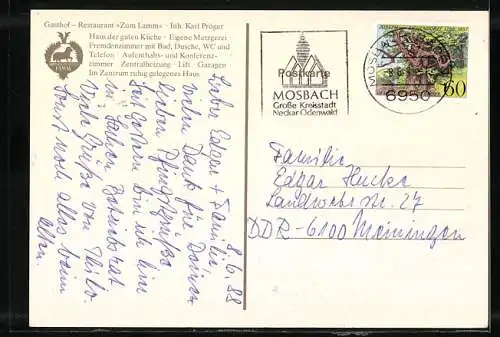 Gasthof – Restaurant »Zum Lamm« · Inh. Karl Pröger
Haus der guten Küche · Eigene Metzgerei
Fremdenzimmer mit Bad, Dusche, WC und
Telefon · Aufenthalts- und Konferenz-
zimmer · Zentralheizung · Lift · Garagen
Im Zentrum ruhig gelegenes Haus
LAMM
8.6.88
Liebe Edgar + Familie,
vielen Dank für Deinen
lieben Pfingstgrüße
seit gestern bin ich hier
in Sachen
Viele Grüße von Thilo
sonst noch alles beim
alten.
Postkarte
MOSBACH
Große Kreisstadt
Neckar-Odenwald
MOSBACH
6950
60
Familie
Edgar Hucke
Landwehrstr. 27
DDR-6100 Meiningen